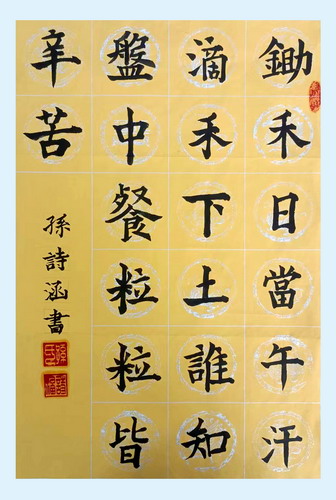 鋤禾日當午汗
滴禾下土誰知
盤中餐粒粒皆
辛苦
孫詩涵書